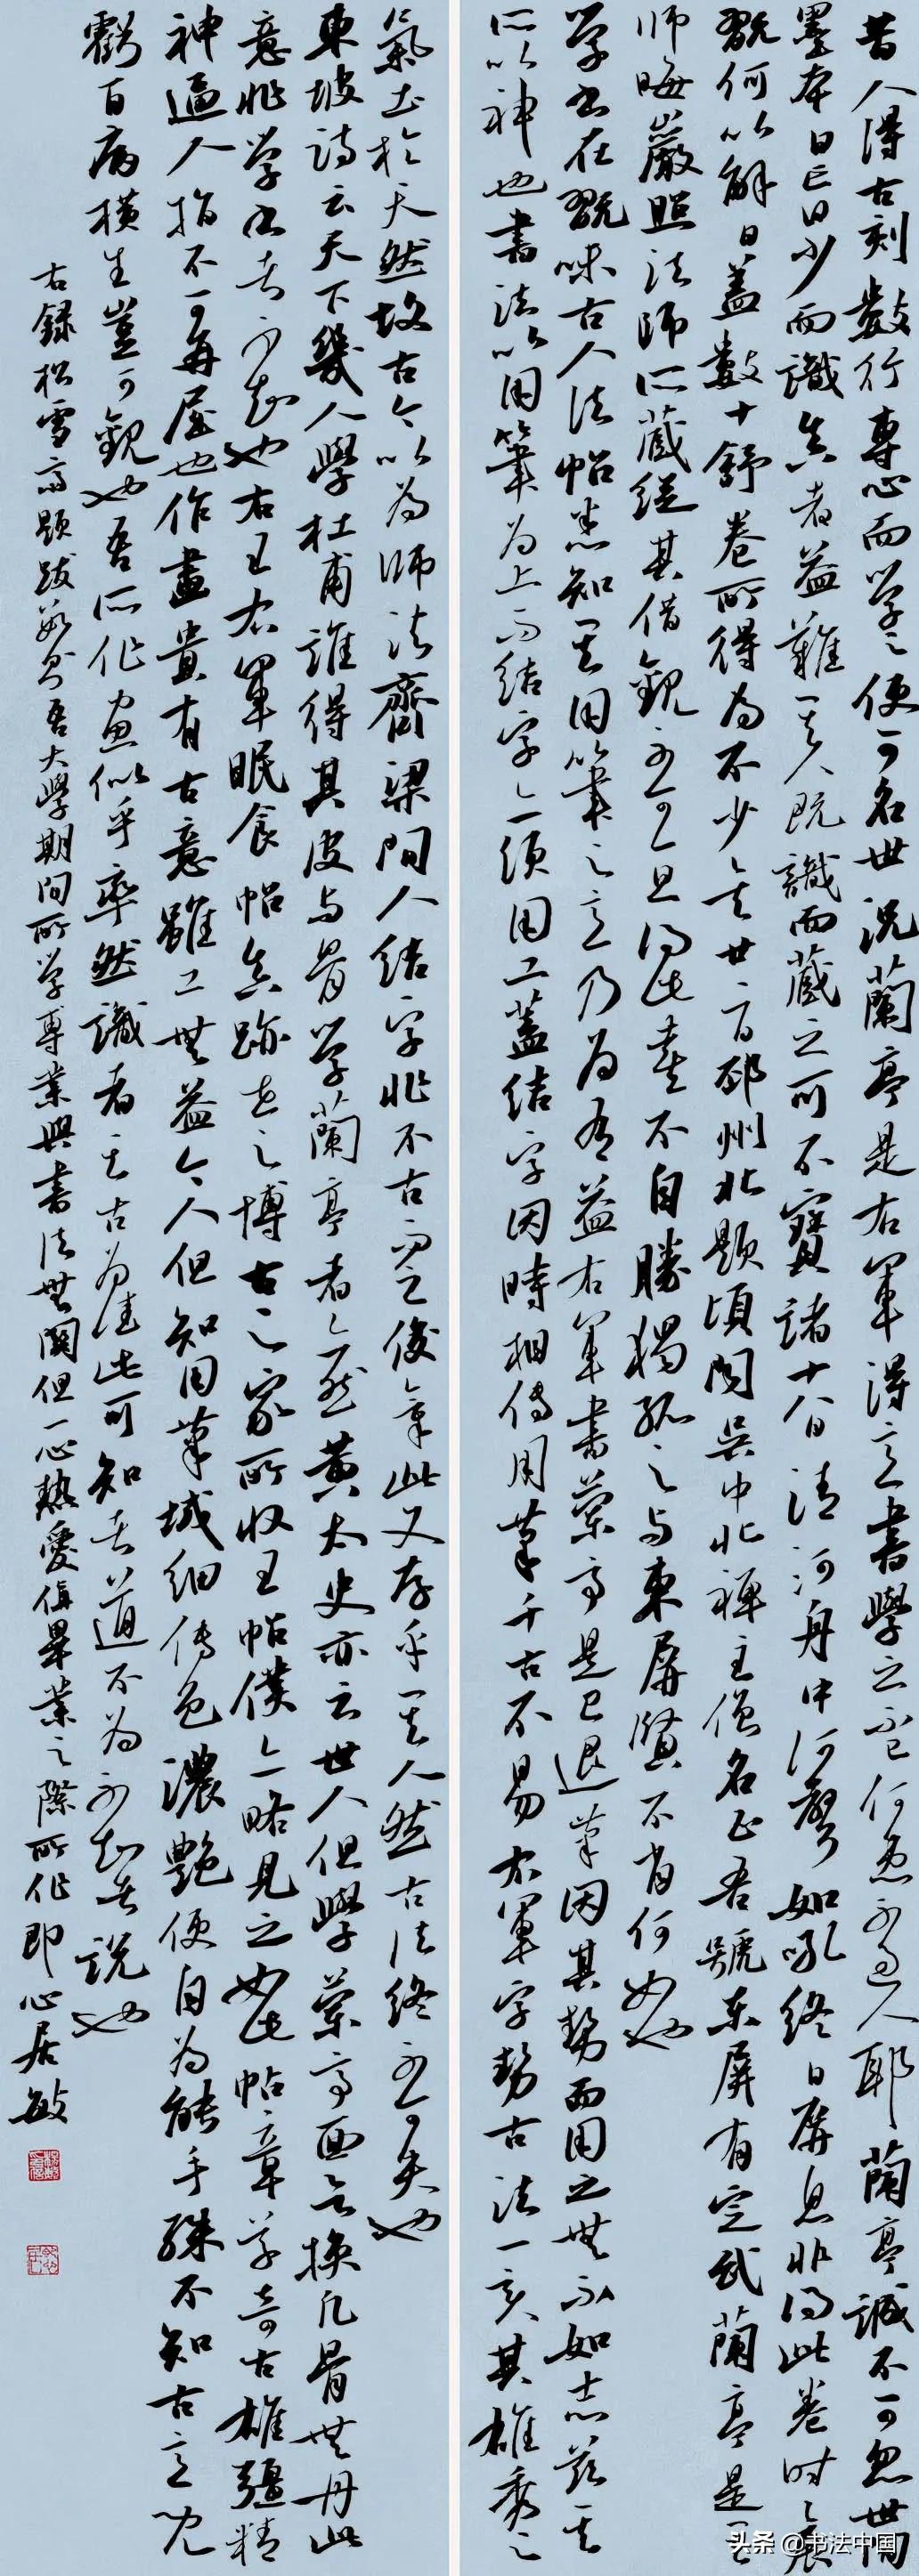 昔人得古刻數行專心而學之便可名世況蘭亭是右軍得意書學之不已何患不過人耶蘭亭誠不可忽世間
墨本日亡日少而識真者益難其人既識而藏之可不寶諸十八日清河舟中河聲如吼終日屏息非得此卷時時展
翫何以解日蓋數十舒卷所得為不少矣廿二日邳州北題頃聞吳中北禪主僧名正吾號東屏有定武蘭亭是其
師晦巖照法師所藏從其借觀不可一旦得此喜不自勝獨孤之與東屏賢不肖何如也
學書在翫味古人法帖悉知其用筆之意乃為有益右軍書蘭亭是已退筆因其勢而用之無不如志茲其
所以神也書法以用筆為上而結字亦須用工蓋結字因時相傳用筆千古不易右軍字勢古法一變其雄秀之
氣出於天然故古今以為師法齊梁間人結字非不古而乏俊氣此又存乎其人然古法終不可失也
東坡詩云天下幾人學杜甫誰得其皮與骨學蘭亭者亦然黃太史亦云世人但學蘭亭面欲換凡骨無丹此
意非學書者不知也右王右軍眠食帖真跡世之博古之家所收王帖僕亦略見之如此帖章草奇古雄強精
神逼人指不可再屈也作畫貴有古意雖工無益今人但知用筆纖細傅色濃艷便自為能手殊不知古意既
虧百病橫生豈可觀也吾所作畫似乎率然識者知其古為佳此可知者道不為不知者說也
右錄松雪齋題跋數則吾大學期間所學專業與書法無關但一心熱愛值畢業之際所作即心居敏
头条 @书法中国